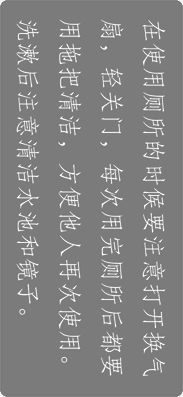 在使用厕所的时候要注意打开换气
扇，轻关门，每次用完厕所后都要
用拖把清洁，方便他人再次使用。
洗漱后注意清洁水池和镜子。